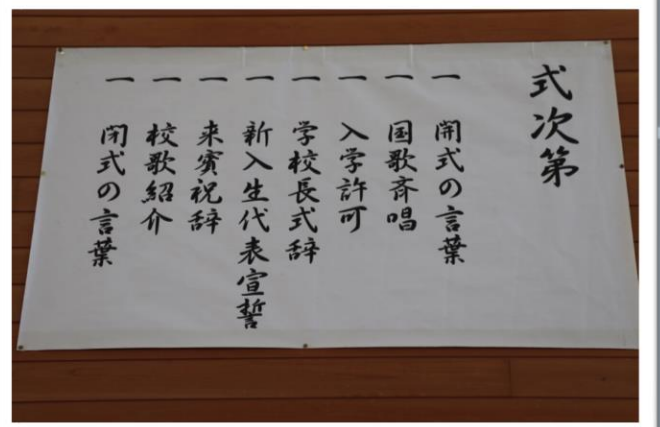 式次第
一 開式の言葉
一 国歌斉唱
一 入学許可
一 学校長式辞
一 新入生代表宣誓
一 来賓祝辞
一 校歌紹介
一 閉式の言葉